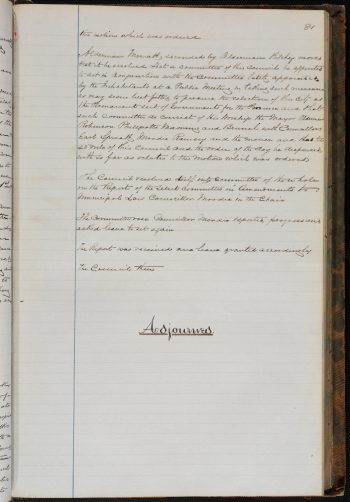 81
the notion which was ordered
Alderman Monatt, seconded by Alderman Ritchey moves
that it be resolved that a committee of this Council be appointed
to act in conjunction with the Committee lately appointed
by the Inhabitants at a Public Meeting in taking such measures
as may seem best fitted to procure the selection of this City as
the Permanent seat of Government for the Province and that
such Committee do consist of His Worship the Mayor Aldermen
Robinson and with Councillors
and the mover and that the
rule of this Council and the orders of the day be dispensed
with so far as relates to this motion which was ordered
The Council resolved itself into Committee of the whole
on the Report of the Select Committee on Amendments to
Municipal Law Councillor in the Chair
The Committee rose Councillor reported progress and
asked leave to sit again
The Report was received and leave granted accordingly
The Council then
Adjourned